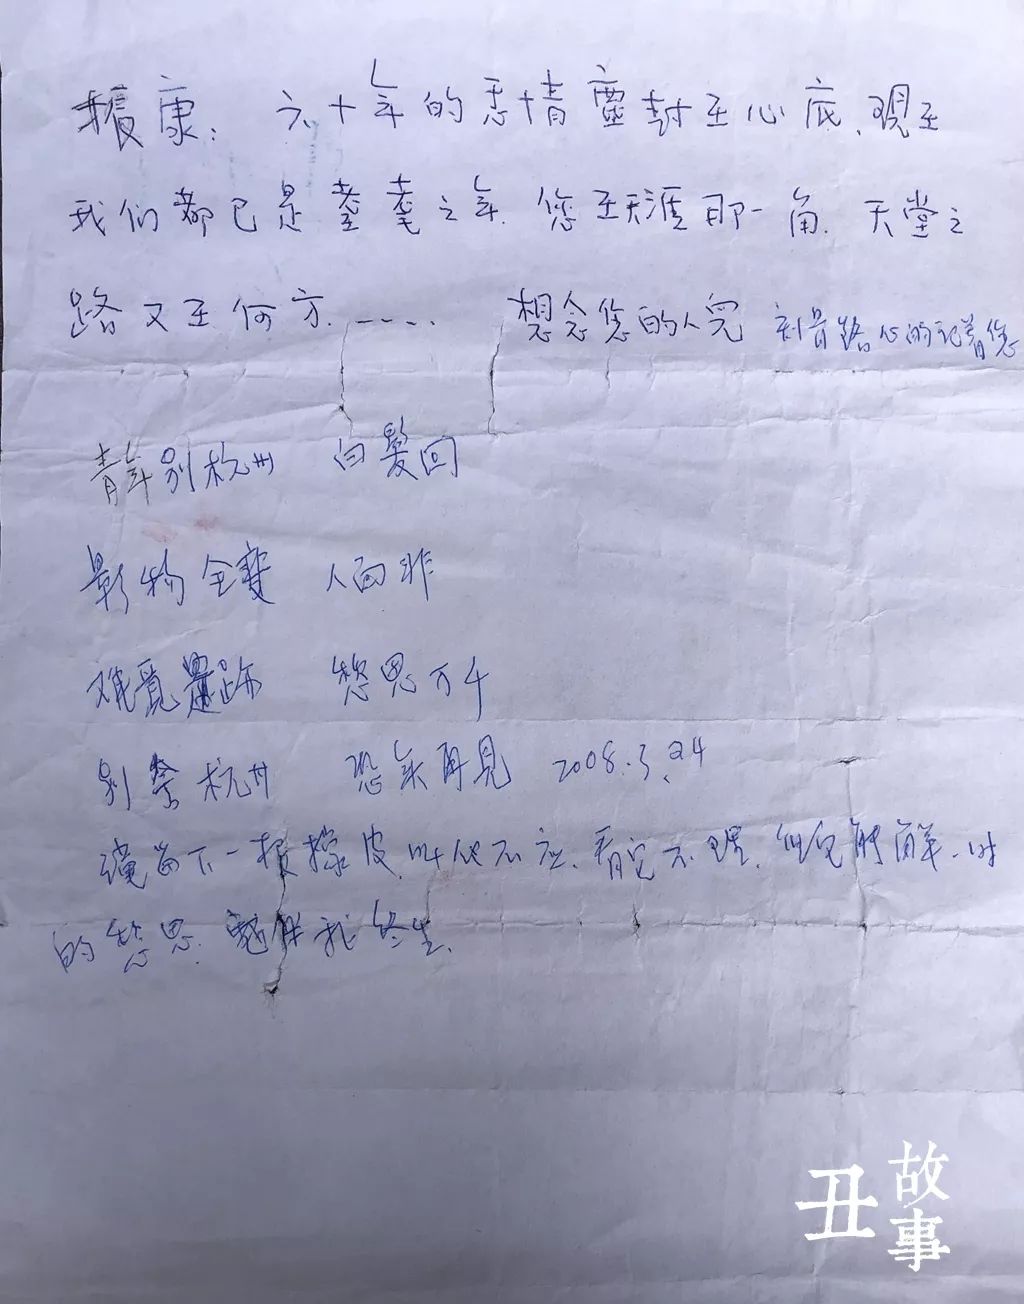 振康：六十年的恋情塵封在心底、現在
我们都已是耄耋之年．您在天涯那一角．天堂之
路又在何方．……想念您的人兒 刻骨路心的記着您
青年别杭州 白髮回
影物全變 人面非
难覓蹤跡 愁思万千
别黎杭州 恐难再見 2008.3.24
留下一根橡皮．叫它不应．看它不理．但它能解一时
的愁思．伴我终生．
丑故事